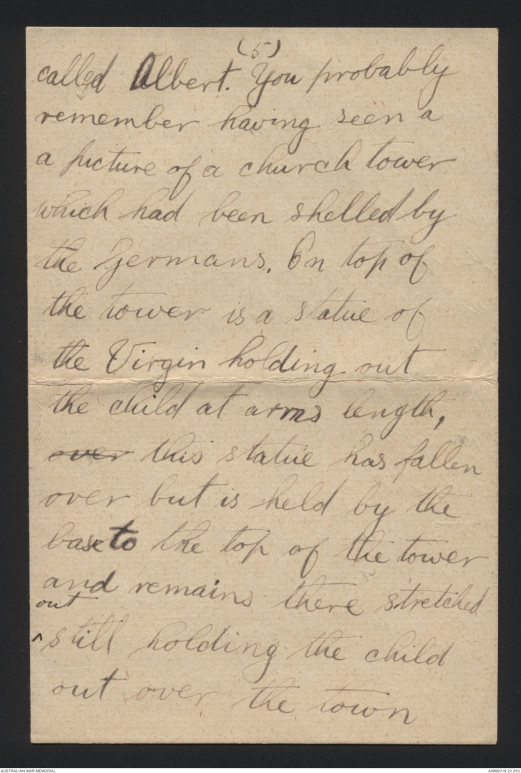 (5)
called Albert. You probably
remember having seen a
a picture of a church tower
which had been shelled by
the Germans. On top of
the tower is a statue of
the Virgin holding out
the child at arms length,
over this statue has fallen
over but is held by the
base to the top of the tower
and remains there stretched
out
^ still holding the child
out over the town
AUSTRALIAN WAR MEMORIAL